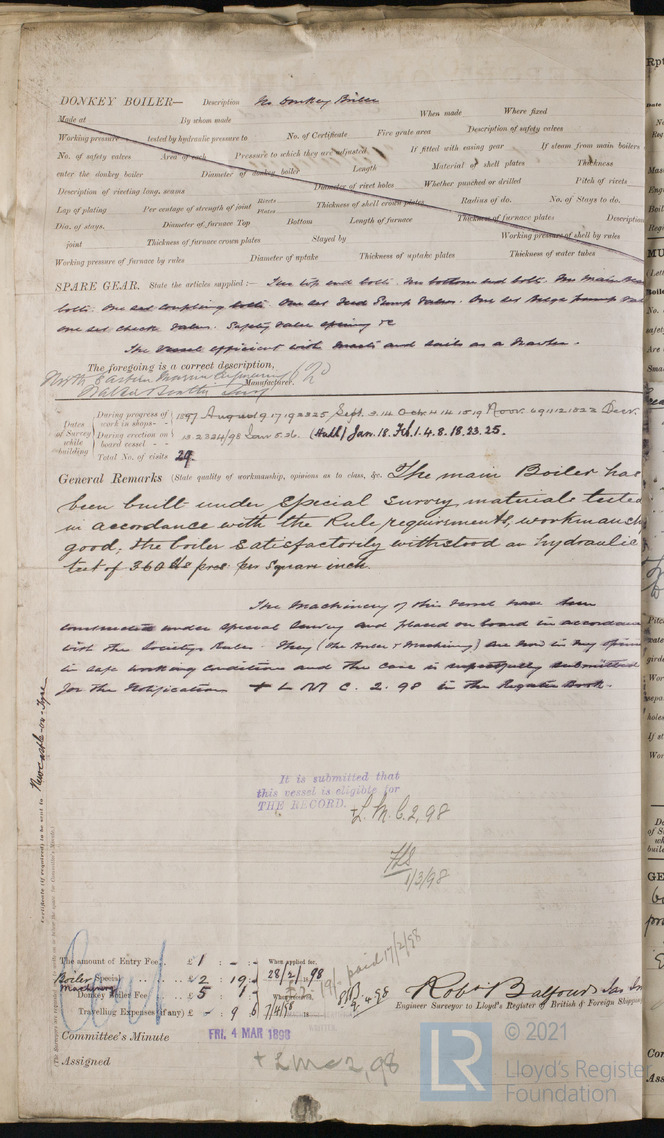 DONKEY BOILER— Description No Donkey Boiler
Made at By whom made When made Where fixed
Working pressure tested by hydraulic pressure to No. of Certificate Fire grate area Description of safety valves
No. of safety valves Area of each Pressure to which they are adjusted If fitted with easing gear If steam from main boilers
enter the donkey boiler Diameter of donkey boiler Length Material of shell plates Thickness
Description of riveting long. seams Diameter of rivet holes Whether punched or drilled Pitch of rivets
Lap of plating Per centage of strength of joint Rivets Plates Thickness of shell crown plates Radius of do. No. of Stays to do.
Dia. of stays. Diameter of furnace Top Bottom Length of furnace Thickness of furnace plates Description
joint Thickness of furnace crown plates Stayed by Working pressure of shell by rules
Working pressure of furnace by rules Diameter of uptake Thickness of uptake plates Thickness of water tubes
SPARE GEAR. State the articles supplied:— Two top end bolts. Two bottom end bolts. Two Main
bolts. One set coupling bolts. One set Feed Pump valves. One set Bilge pump
one set check valves. Safety valve spring &c
The vessel efficient with masts and sails as a
The foregoing is a correct description,
North Eastern Marine Engineering Co Ld
Manufacturer.
Dates of Survey while building
During progress of work in shops-- 1897 August 9 17 19 23 25 Sept. 3. 14 Oct 4 14 15 19 Novr. 4 9 11 12 18 22 Decr.
During erection on board vessel--- 13. 23 24/98 Jan 5. 26. (Hull) Jan. 18. Feb. 1. 4. 8. 18. 23. 25.
Total No. of visits 29.
General Remarks (State quality of workmanship, opinions as to class, &c. The main Boiler has
been built under Special Survey materials tested
in accordance with the Rule requirements, workmanship
good; the boiler satisfactorily withstood an hydraulic
test of 360 lbs pres. per square inch.
The Machinery of this vessel have been
constructed under special survey and placed on board in accordance
with the Society's Rules. They (the Boiler & Machinery) are now in my opinion
in safe working conditions and the case is respectfully submitted
for the Notification + L M C. 2. 98 in the Register Book.
Certificate (if required) to be sent to Newcastle-on-Tyne
It is submitted that
this vessel is eligible for
THE RECORD. + L. M. C. 2, 98
1/3/98
The amount of Entry Fee.. £ 1 : - : - When applied for,
Boiler Special .. .. £ 2 : 19 : - 28/2/98
Machinery Donkey Boiler Fee £ 5 1 - When received,
Travelling Expenses (if any) £ - : 9 6 7/4/98
paid 17/2/98
9.4.98
Robt Balfour
Engineer Surveyor to Lloyd's Register of British & Foreign Shipping
Committee's Minute FRI. 4 MAR 1898
Assigned + L M C 2, 98
LR
© 2021
Lloyd's Register
Foundation